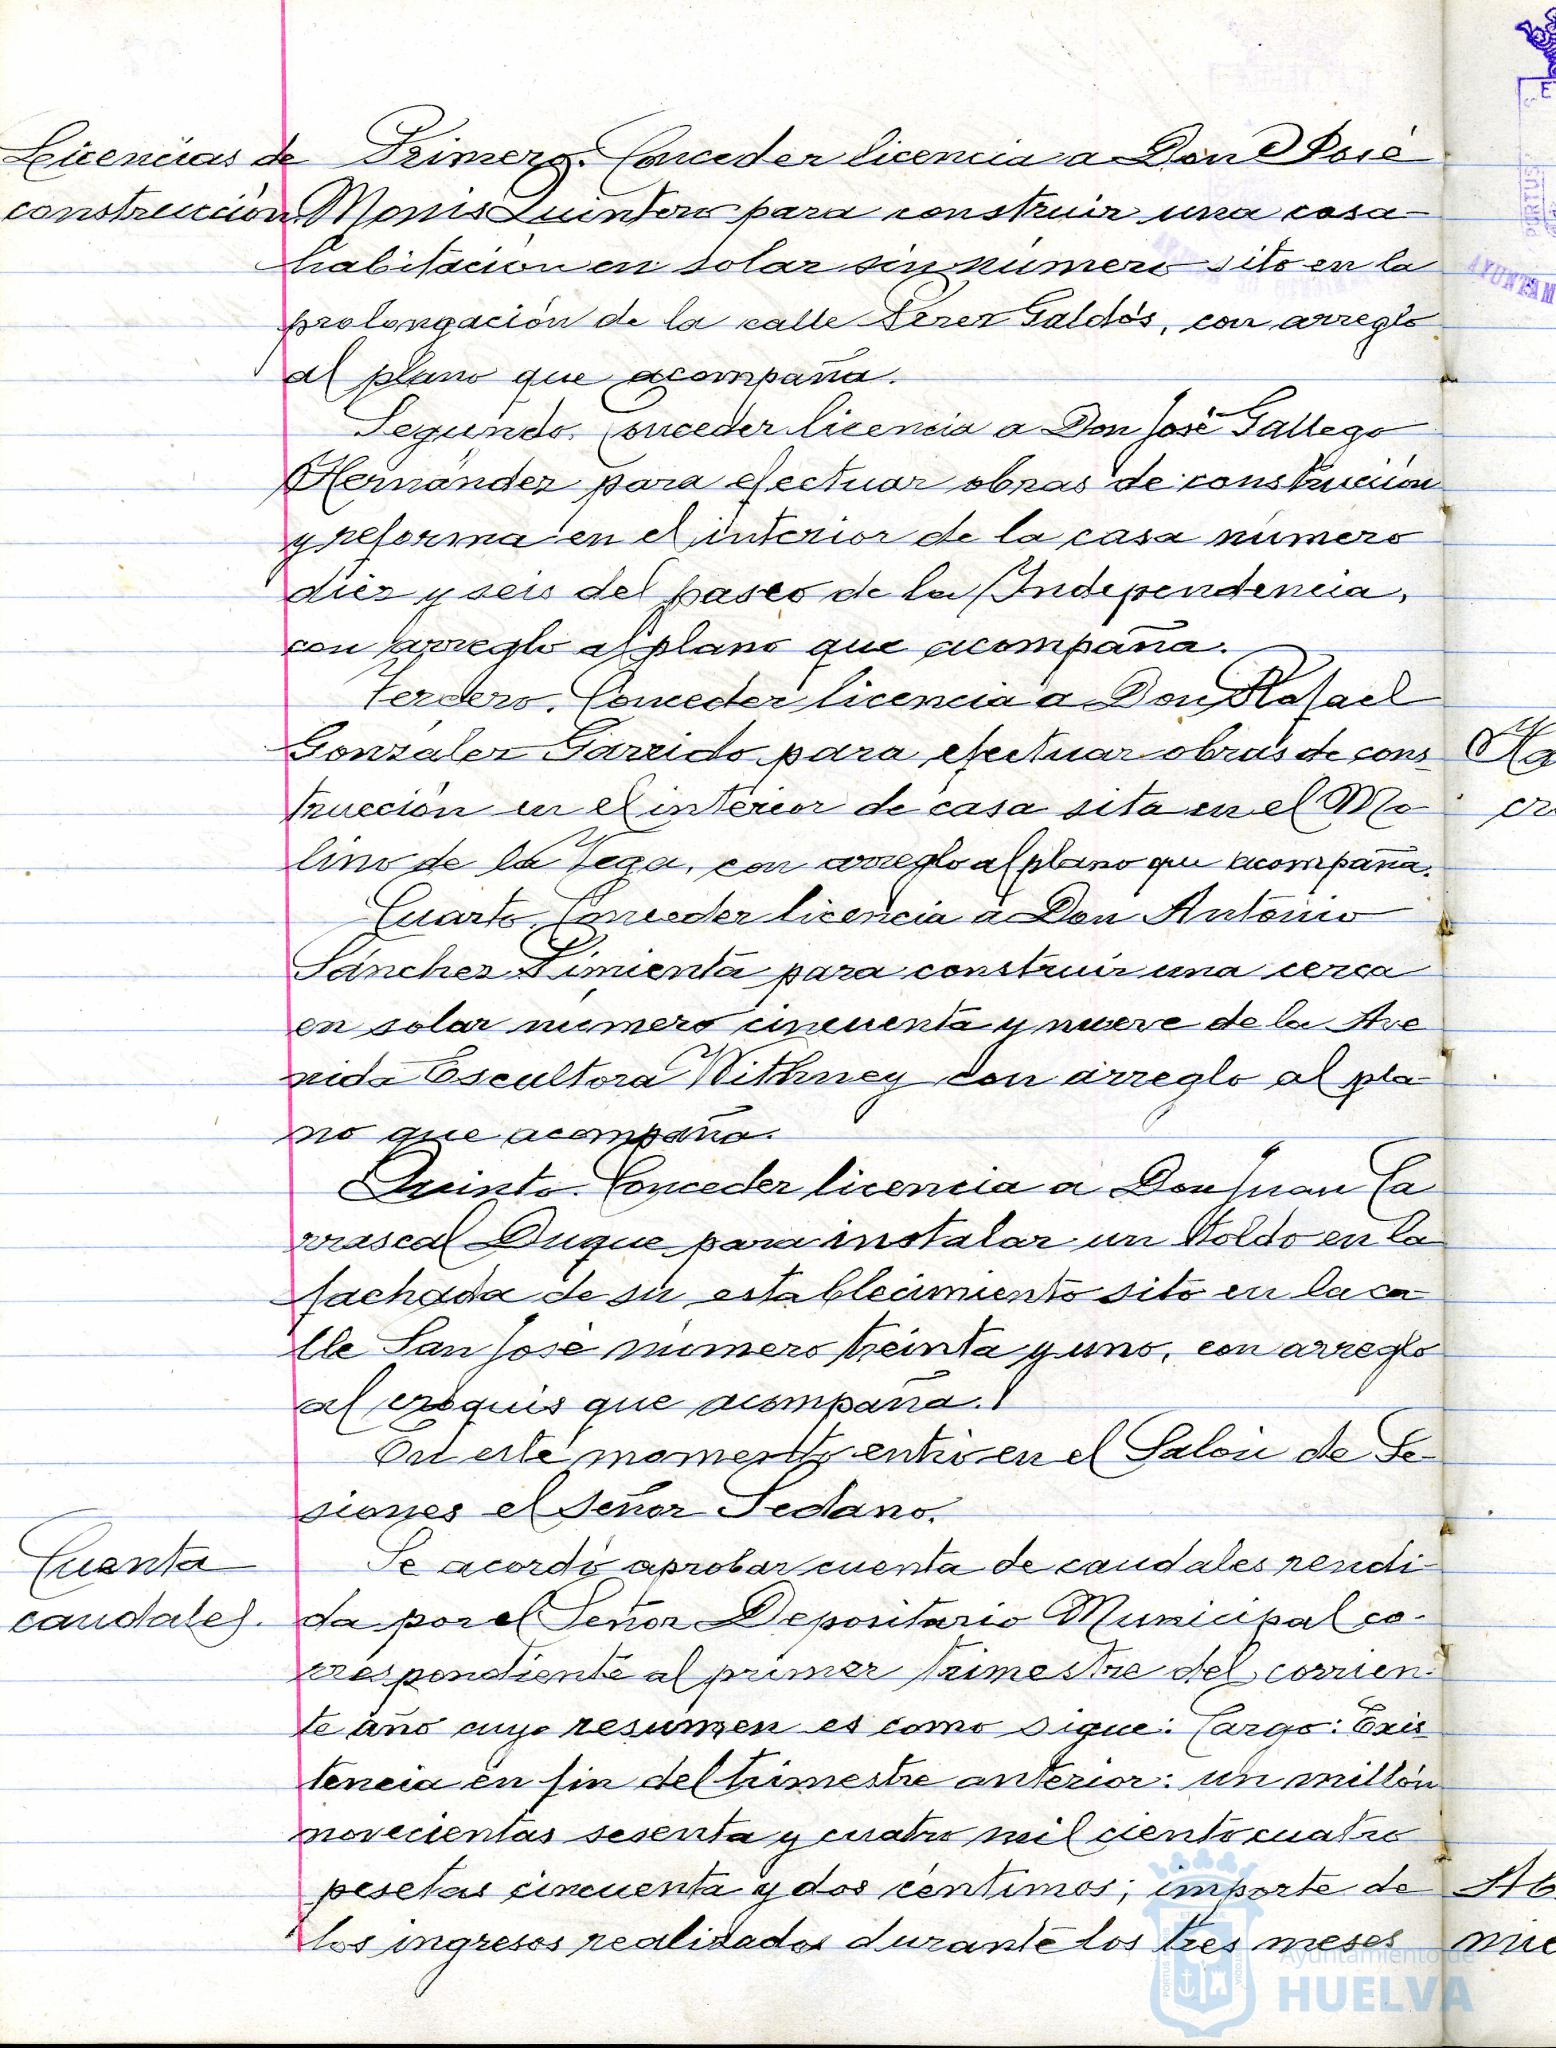 Licencias de
construcción
Primero. Conceder licencia a Don José
Monis Quintero para construir una casa
habitación en solar sin número sito en la
prolongación de la calle Perez Galdós, con arreglo
al plano que acompaña.
Segundo. Conceder licencia a Don José Gallego
Hernández para efectuar obras de construcción
y reforma en el interior de la casa número
diez y seis del paseo de la Independencia,
con arreglo al plano que acompaña.
Tercero. Conceder licencia a Don Rafael
González Garrido para efectuar obras de cons-
trucción en el interior de casa sita en el Mo-
lino de la Vega, con arreglo al plano que acompaña.
Cuarto. Conceder licencia a Don Antonio
Sánchez Pimienta para construir una cerca
en solar número cincuenta y nueve de la Ave
nida Escultora Withney con arreglo al pla-
no que acompaña.
Quinto. Conceder licencia a Don Juan Ca
rrascal Duque para instalar un toldo en la
fachada de su establecimiento sito en la ca-
lle San José número treinta y uno, con arreglo
al croquis que acompaña.
En este momento entró en el Salón de Se-
siones el Señor Sedano.
Cuenta
caudales.
Se acordó aprobar cuenta de caudales rendi-
da por el Señor Depositario Municipal co-
rrespondiente al primer trimestre del corrien-
te año cuyo resúmen es como sigue: Cargo: Exis-
tencia en fin del trimestre anterior: un millón
novecientas sesenta y cuatro mil ciento cuatro
pesetas cincuenta y dos céntimos; importe de
los ingresos realizados durante los tres meses
Ayuntamiento de
HUELVA